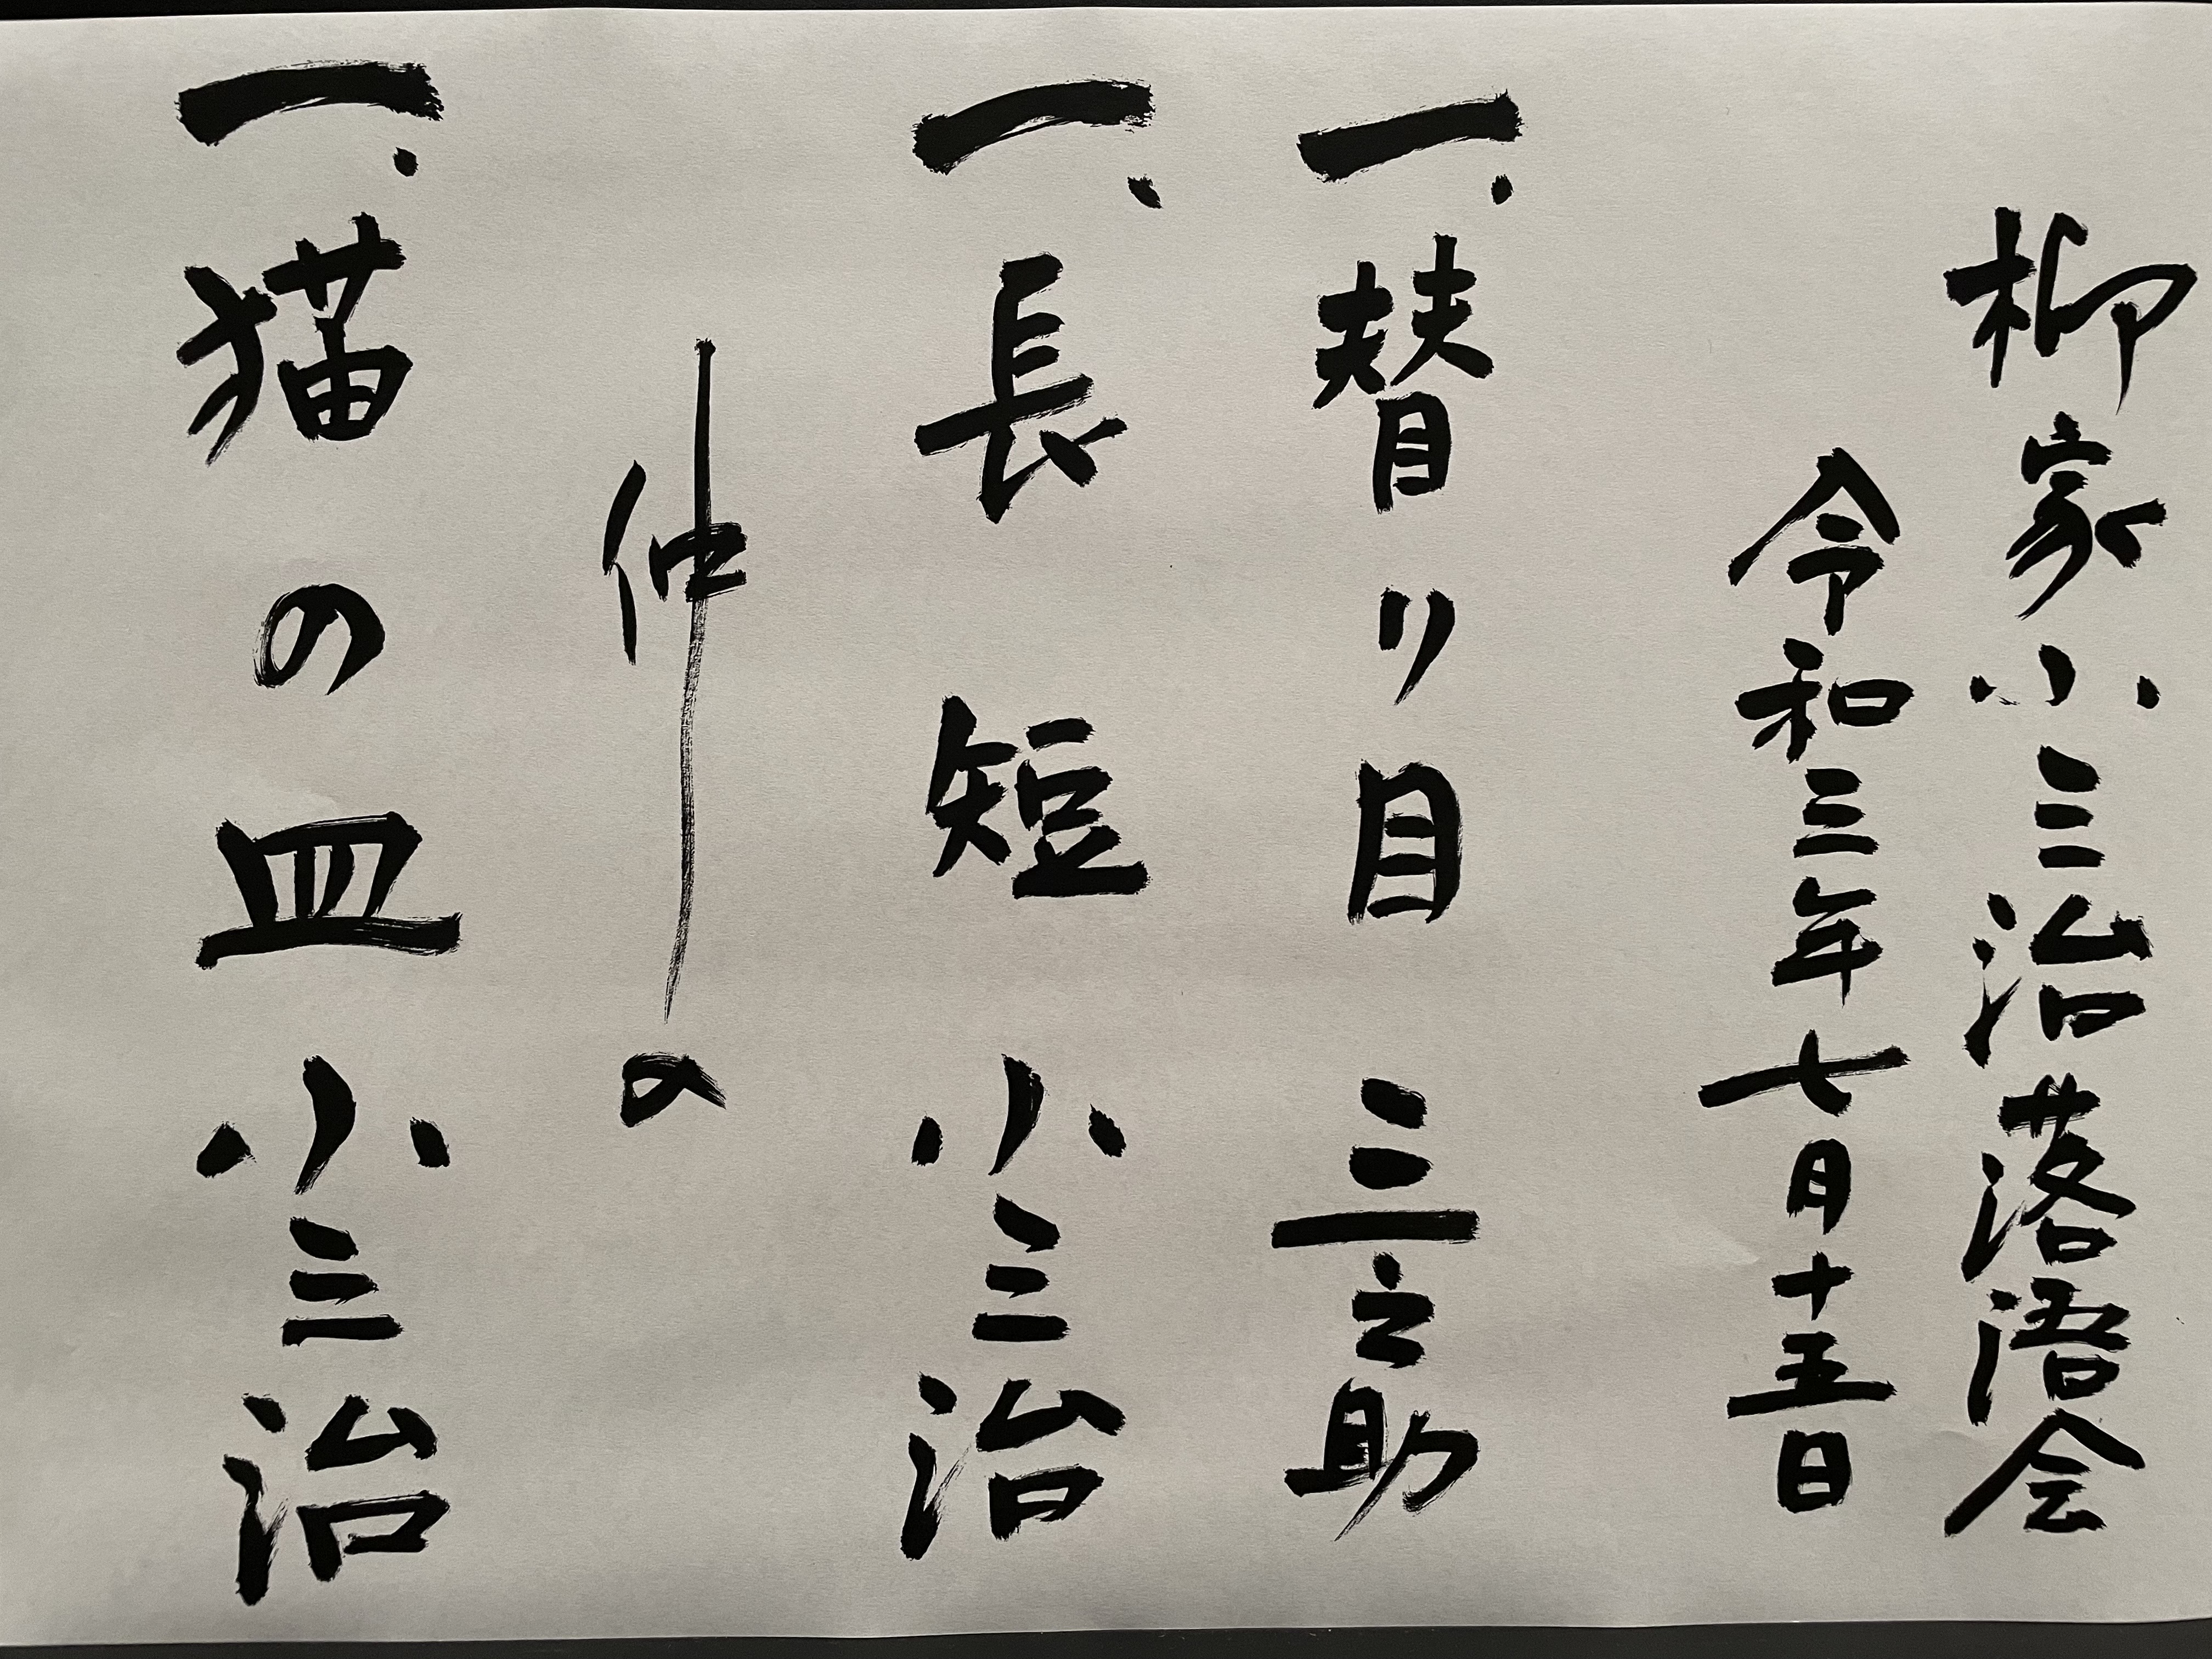 柳家小三治落語会
令和三年七月十五日
一、替り目 三之助
一、長短 小三治
仲の
一、猫の皿 小三治